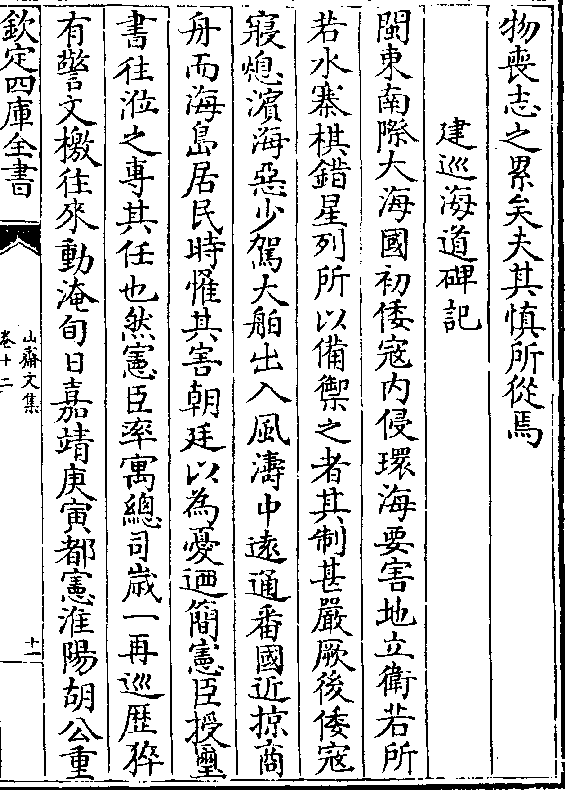 物喪志之累矣夫其慎所從焉
建巡海道碑記
閩東南際大海國初倭寇内侵環海要害地立衛若所
若水寨棋錯星列所以備禦之者其制甚嚴厥後倭寇
寢熄濱海惡少駕大舶出入風濤中遠通番國近掠商
舟而海島居民時惟其害朝廷以為憂迺簡憲臣授璽
書往涖之專其任也然憲臣率寓總司歲一再巡歷猝
有警文檄往來動淹旬日嘉靖庚寅都憲淮陽胡公重
欽定四庫全書
山齋文集
卷十二
十一